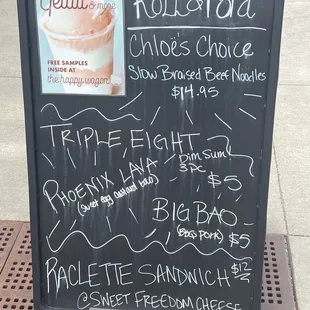 Gelato
& more
FREE SAMPLES
INSIDE AT
the happy wagon
Chloë's Choice
Slow Braised Beef Noodles
$14.95
TRIPLE EIGHT
Dim Sum
3PC
$5
PHOENIX LAVA
(sweet egg custard bao)
BIG BAO
(BBQ pork) $5
RACLETTE SANDWICH $12
@SWEET FREEDOM CHEESE